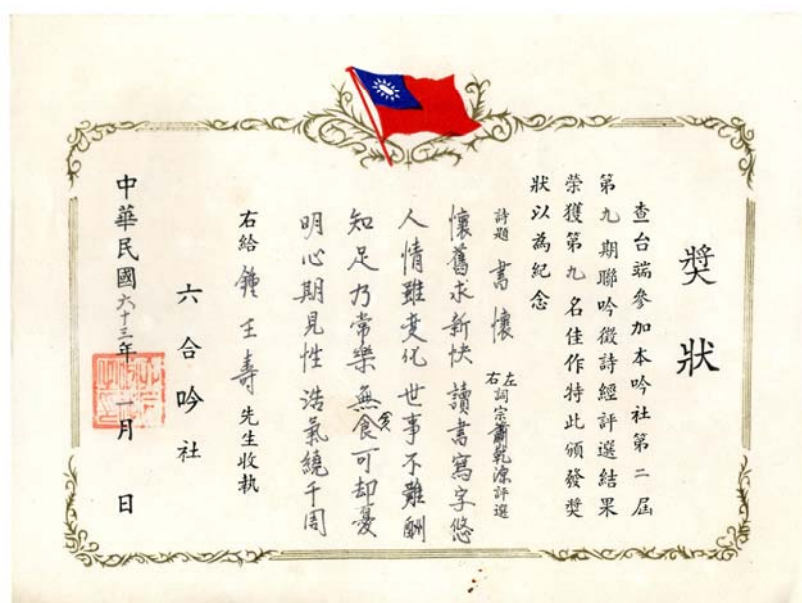 獎狀
查台端參加本吟社第二屆
第九期聯吟徵詩經評選結果
榮獲第九名佳作特此頒發獎
狀以為紀念
詩題 書懷 左右詞宗蕭乾源評選
懷舊求新快讀書寫字悠
人情雖变化世事不難酬
知足乃常樂無食貪可却憂
明心期見性浩氣繞千周
右給鍾壬壽先生收執
六合吟社
中華民國六十三年一月 日